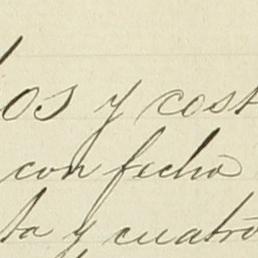 os y cost
con fecha
ta y cuatro